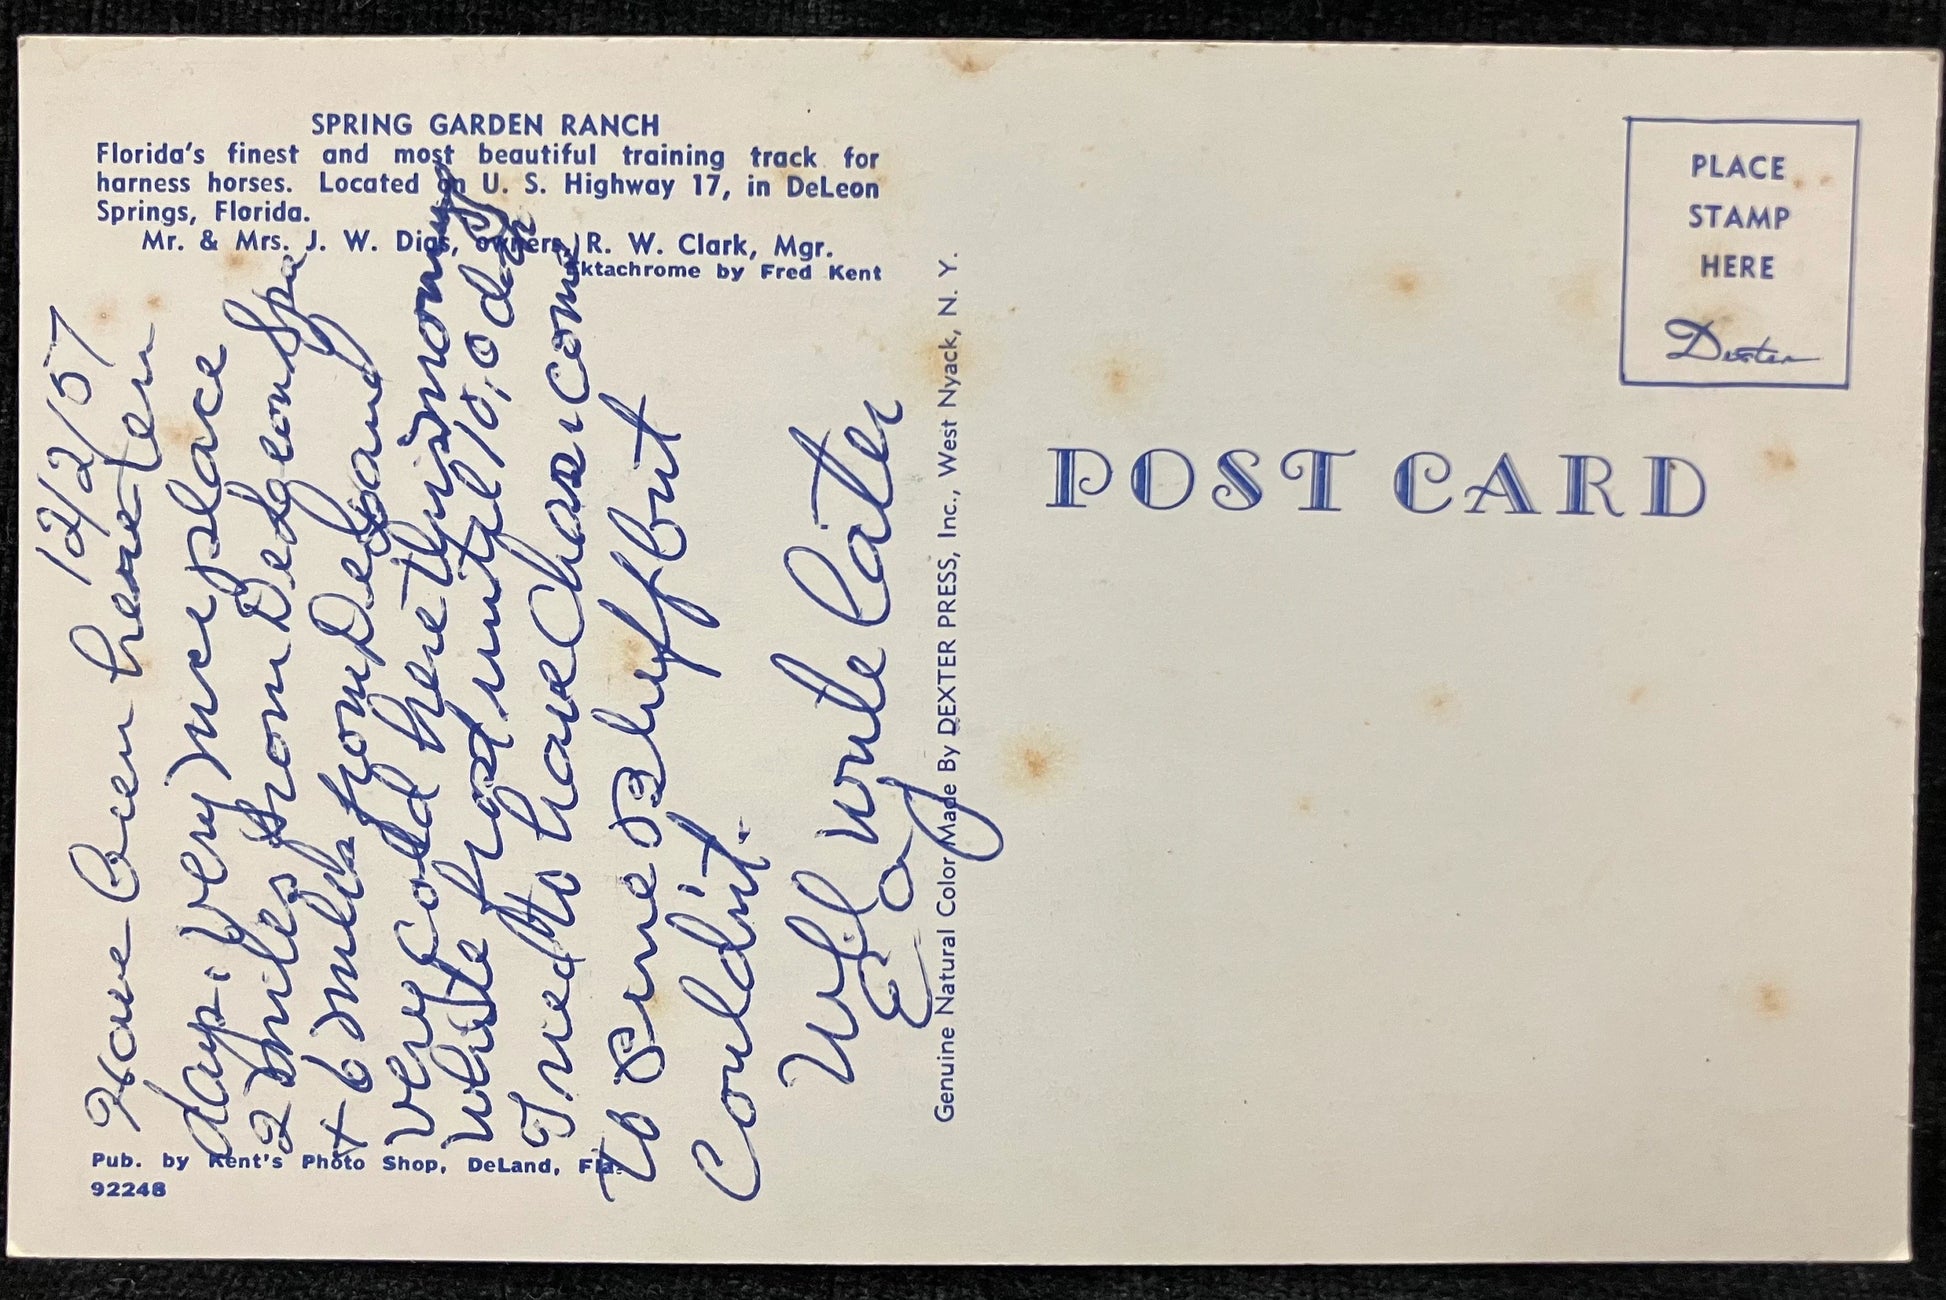 SPRING GARDEN RANCH
Florida's finest and most beautiful training track for
harness horses. Located on U. S. Highway 17, in DeLeon
Springs, Florida.
Mr. & Mrs. J. W. Dias, owners, R. W. Clark, Mgr.
Ektachrome by Fred Kent
12/2/57
Have been here ten
days. very nice place
2 miles from
+ 6 miles from Deland
very cold here this morning
white frost until 10,0
Tried to have Chas. come
to
Couldn't.
Will write later
Pub. by Kent's Photo Shop, DeLand, Fla.
92248
Genuine Natural Color Made By DEXTER PRESS, Inc., West Nyack, N. Y.
POST CARD
PLACE
STAMP
HERE
Dexter